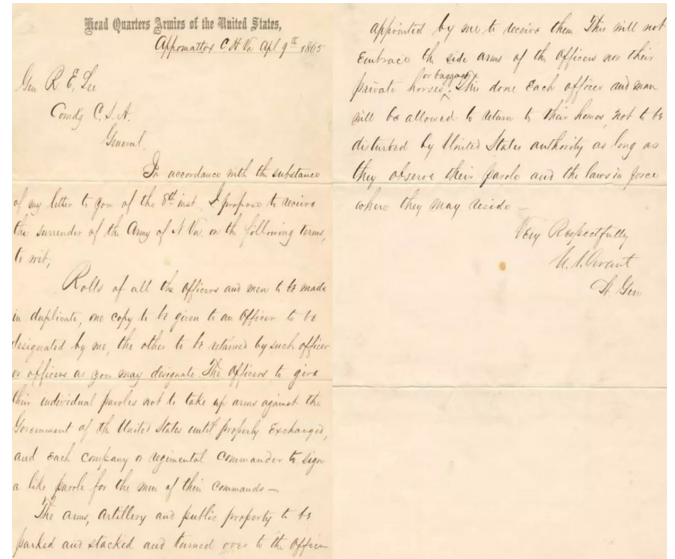 Head Quarters Armies of the United States,
Appomattox C. H. Va. Apl 9th 1865
Gen R. E. Lee
Comdg C. S. A.
General,
In accordance with the substance
of my letter to you of the 8th inst. I propose to receive
the surrender of the Army of N. Va. on the following terms,
to wit,
Rolls of all the officers and men to be made
in duplicate, one copy to be given to an Officer to be
designated by me, the other to be retained by such officer
or officers as you may designate. The Officers to give
their individual paroles not to take up arms against the
Government of the United States until properly Exchanged,
and Each Company or regimental Commander to sign
a like parole for the men of their commands —
The arms, Artillery and public property to be
parked and stacked and turned over to the Officer
appointed by me to receive them. This will not
Embrace the side arms of the Officers nor their
private horses or baggage. This done Each officer and man
will be allowed to return to their homes, not to be
disturbed by United States authority as long as
they observe their parole and the laws in force
where they may reside —
Very Respectfully
U. S. Grant
Lt Gen